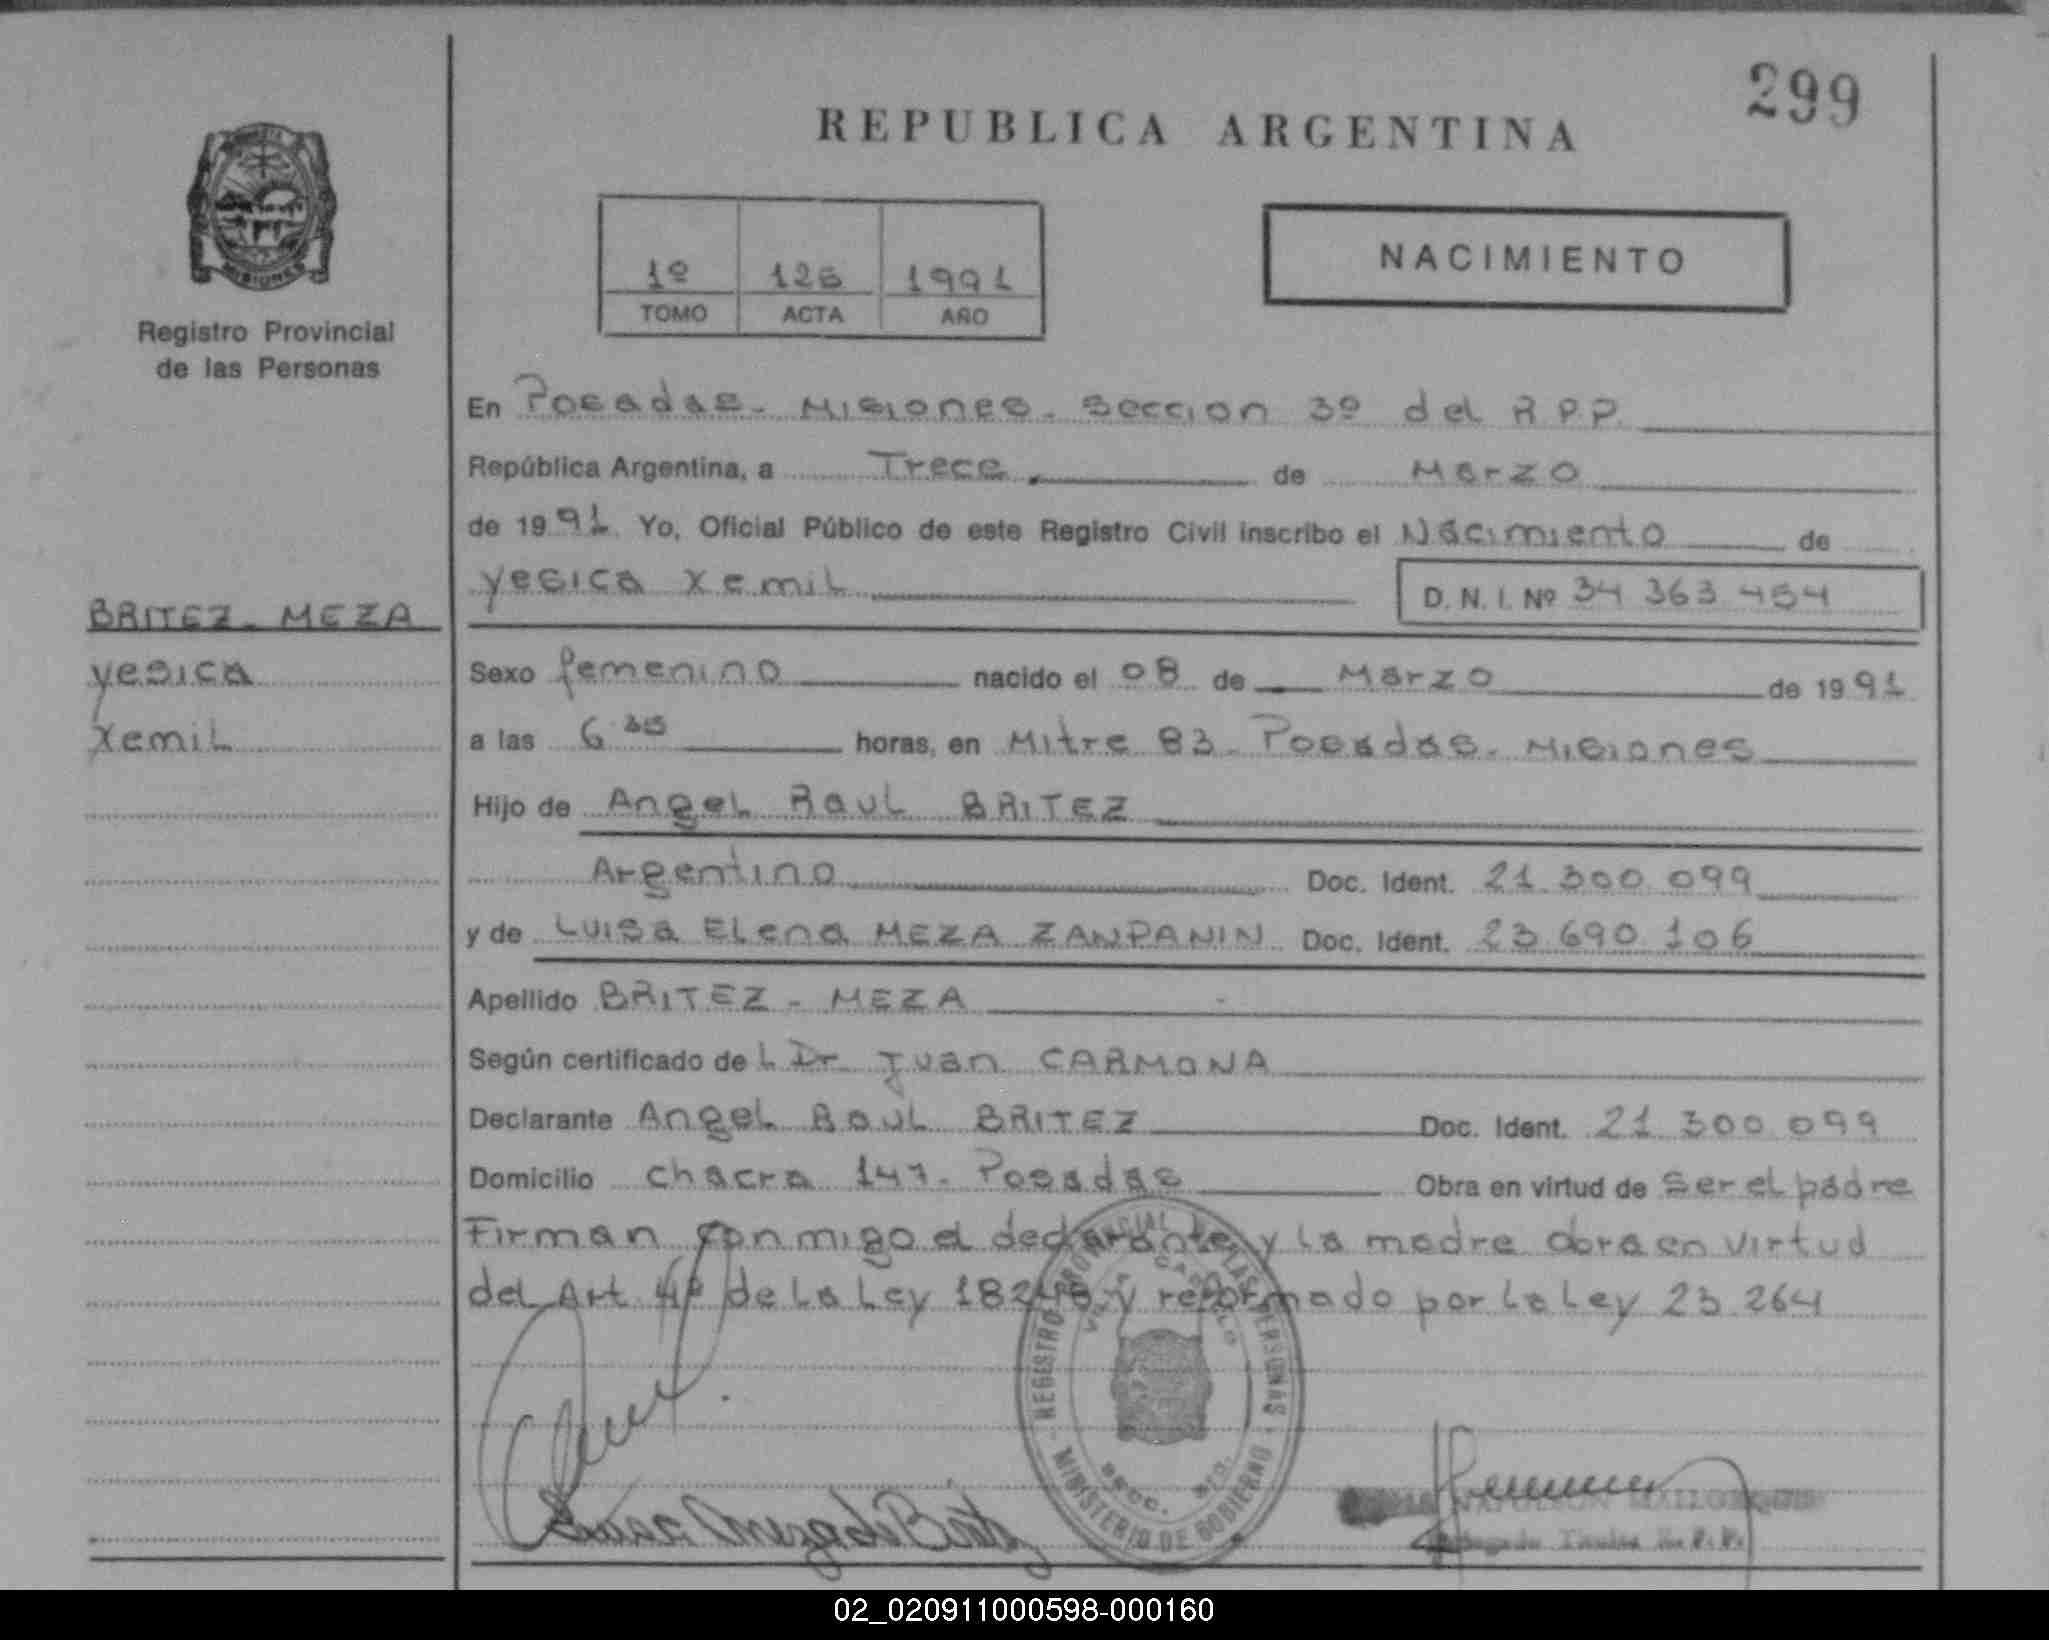 299
REPUBLICA ARGENTINA
MISIONES
Registro Provincial
de las Personas
1º 126 1991
TOMO ACTA AÑO
NACIMIENTO
En Posadas - Misiones - Seccion 3º del R.P.P.
República Argentina, a Trece de Marzo
de 1991. Yo, Oficial Público de este Registro Civil inscribo el Nacimiento de
yesica xemil D.N.I. Nº 34 363 454
BRITEZ - MEZA
yesica
xemil
Sexo femenino nacido el 08 de Marzo de 1991
a las 6 horas, en Mitre 83 - Posadas - Misiones
Hijo de Angel Raul BRITEZ
Argentino Doc. Ident. 21 300 099
y de Luisa Elena MEZA ZANPANIN Doc. Ident. 23 690 106
Apellido BRITEZ - MEZA
Según certificado del Dr Juan CARMONA
Declarante Angel Raul BRITEZ Doc. Ident. 21 300 099
Domicilio chacra 147 - Posadas Obra en virtud de ser el padre
Firman conmigo el declarante y la madre obra en virtud
del Art 4º de la Ley 18248 y reformado por la Ley 23.264
REGISTRO PROVINCIAL DE LAS PERSONAS
SECC. 3ra.
MINISTERIO DE GOBIERNO
Luisa Meza de Britez
02_020911000598-000160